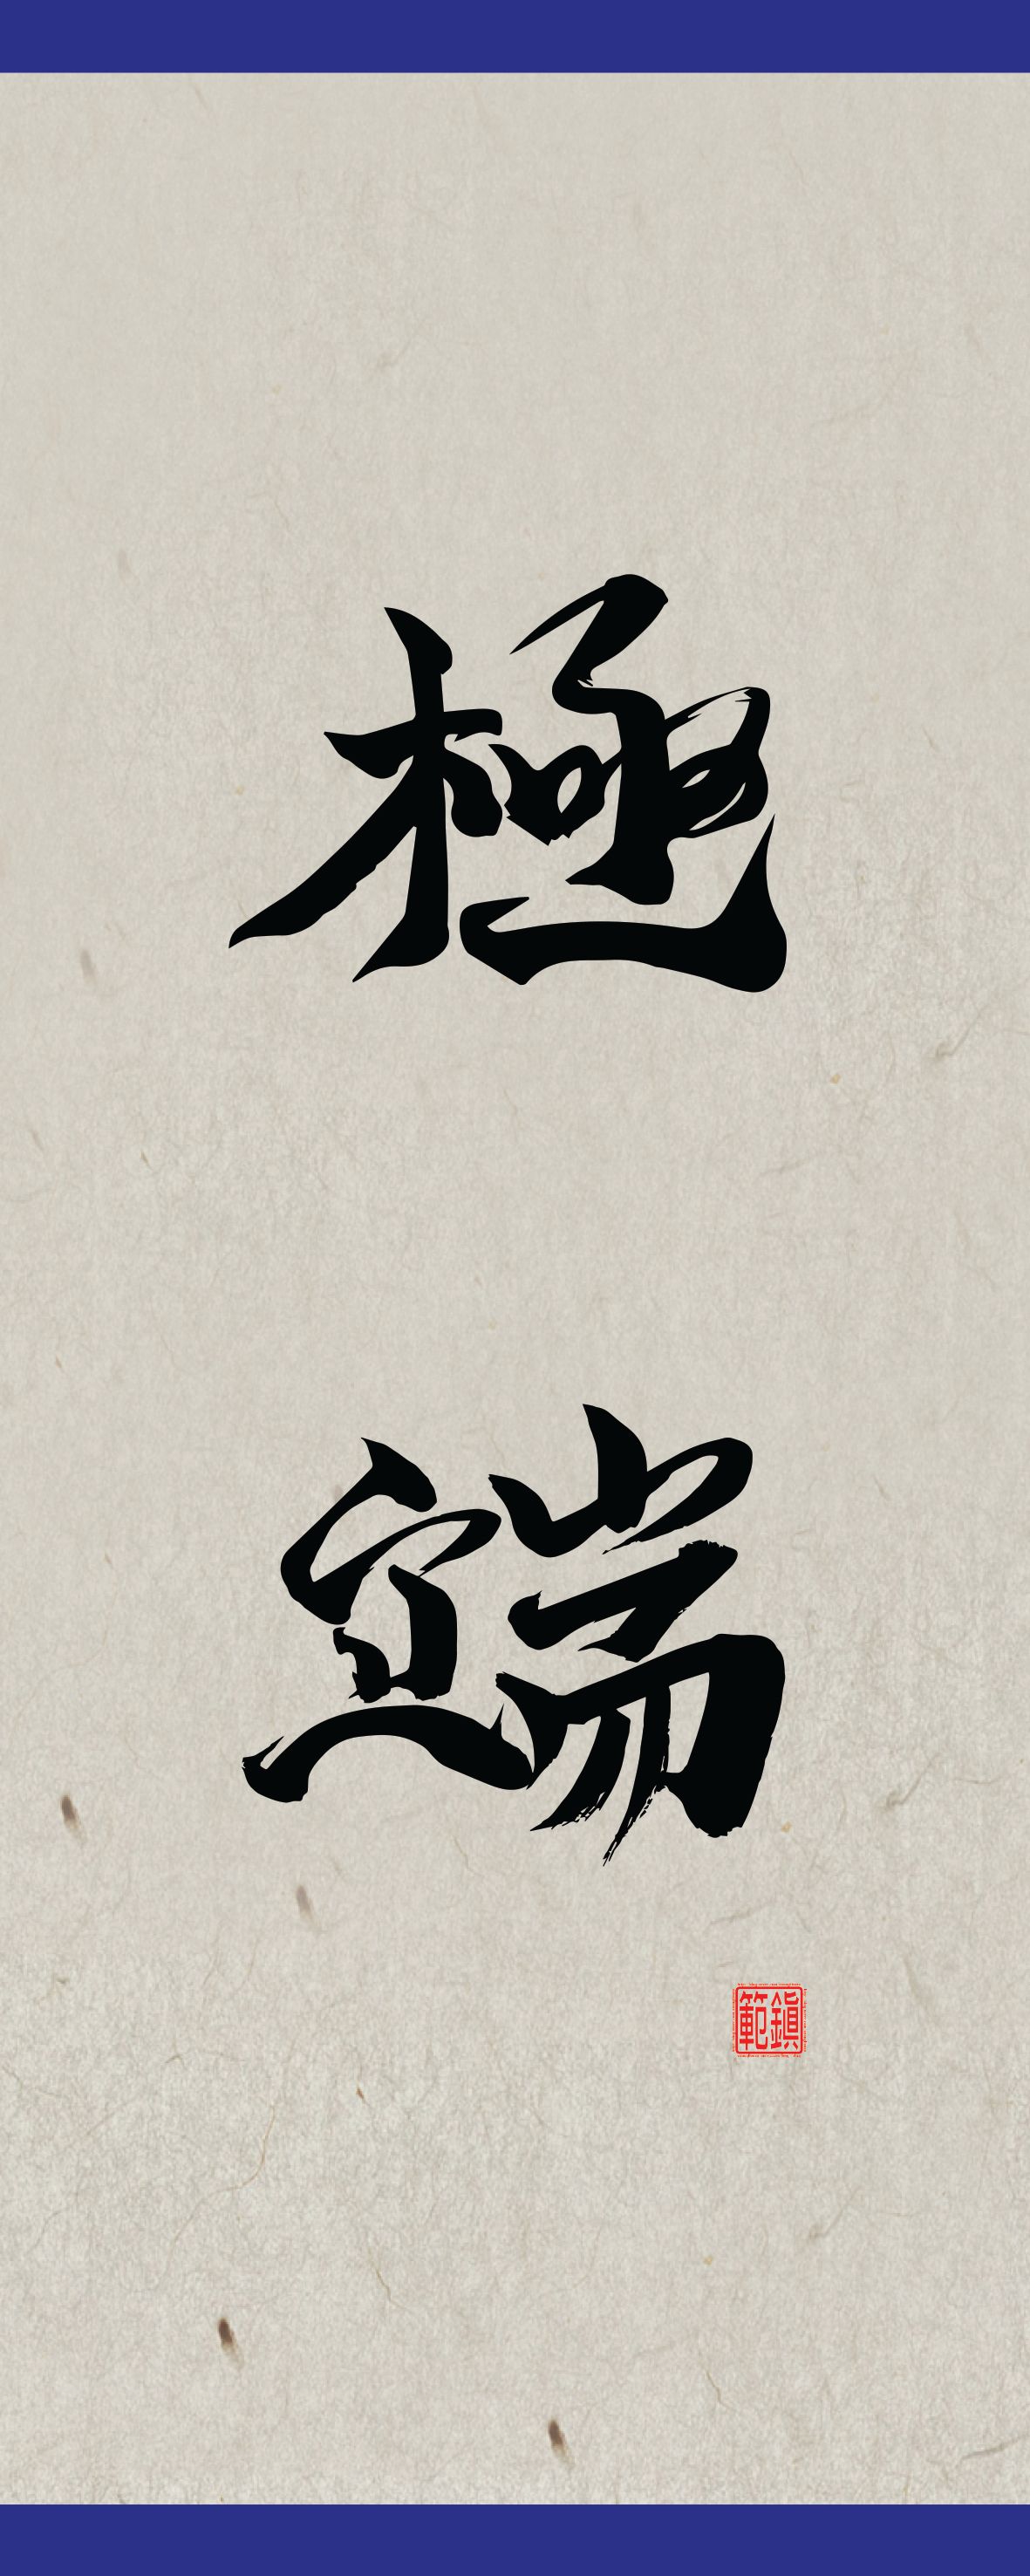 極端
鎮範